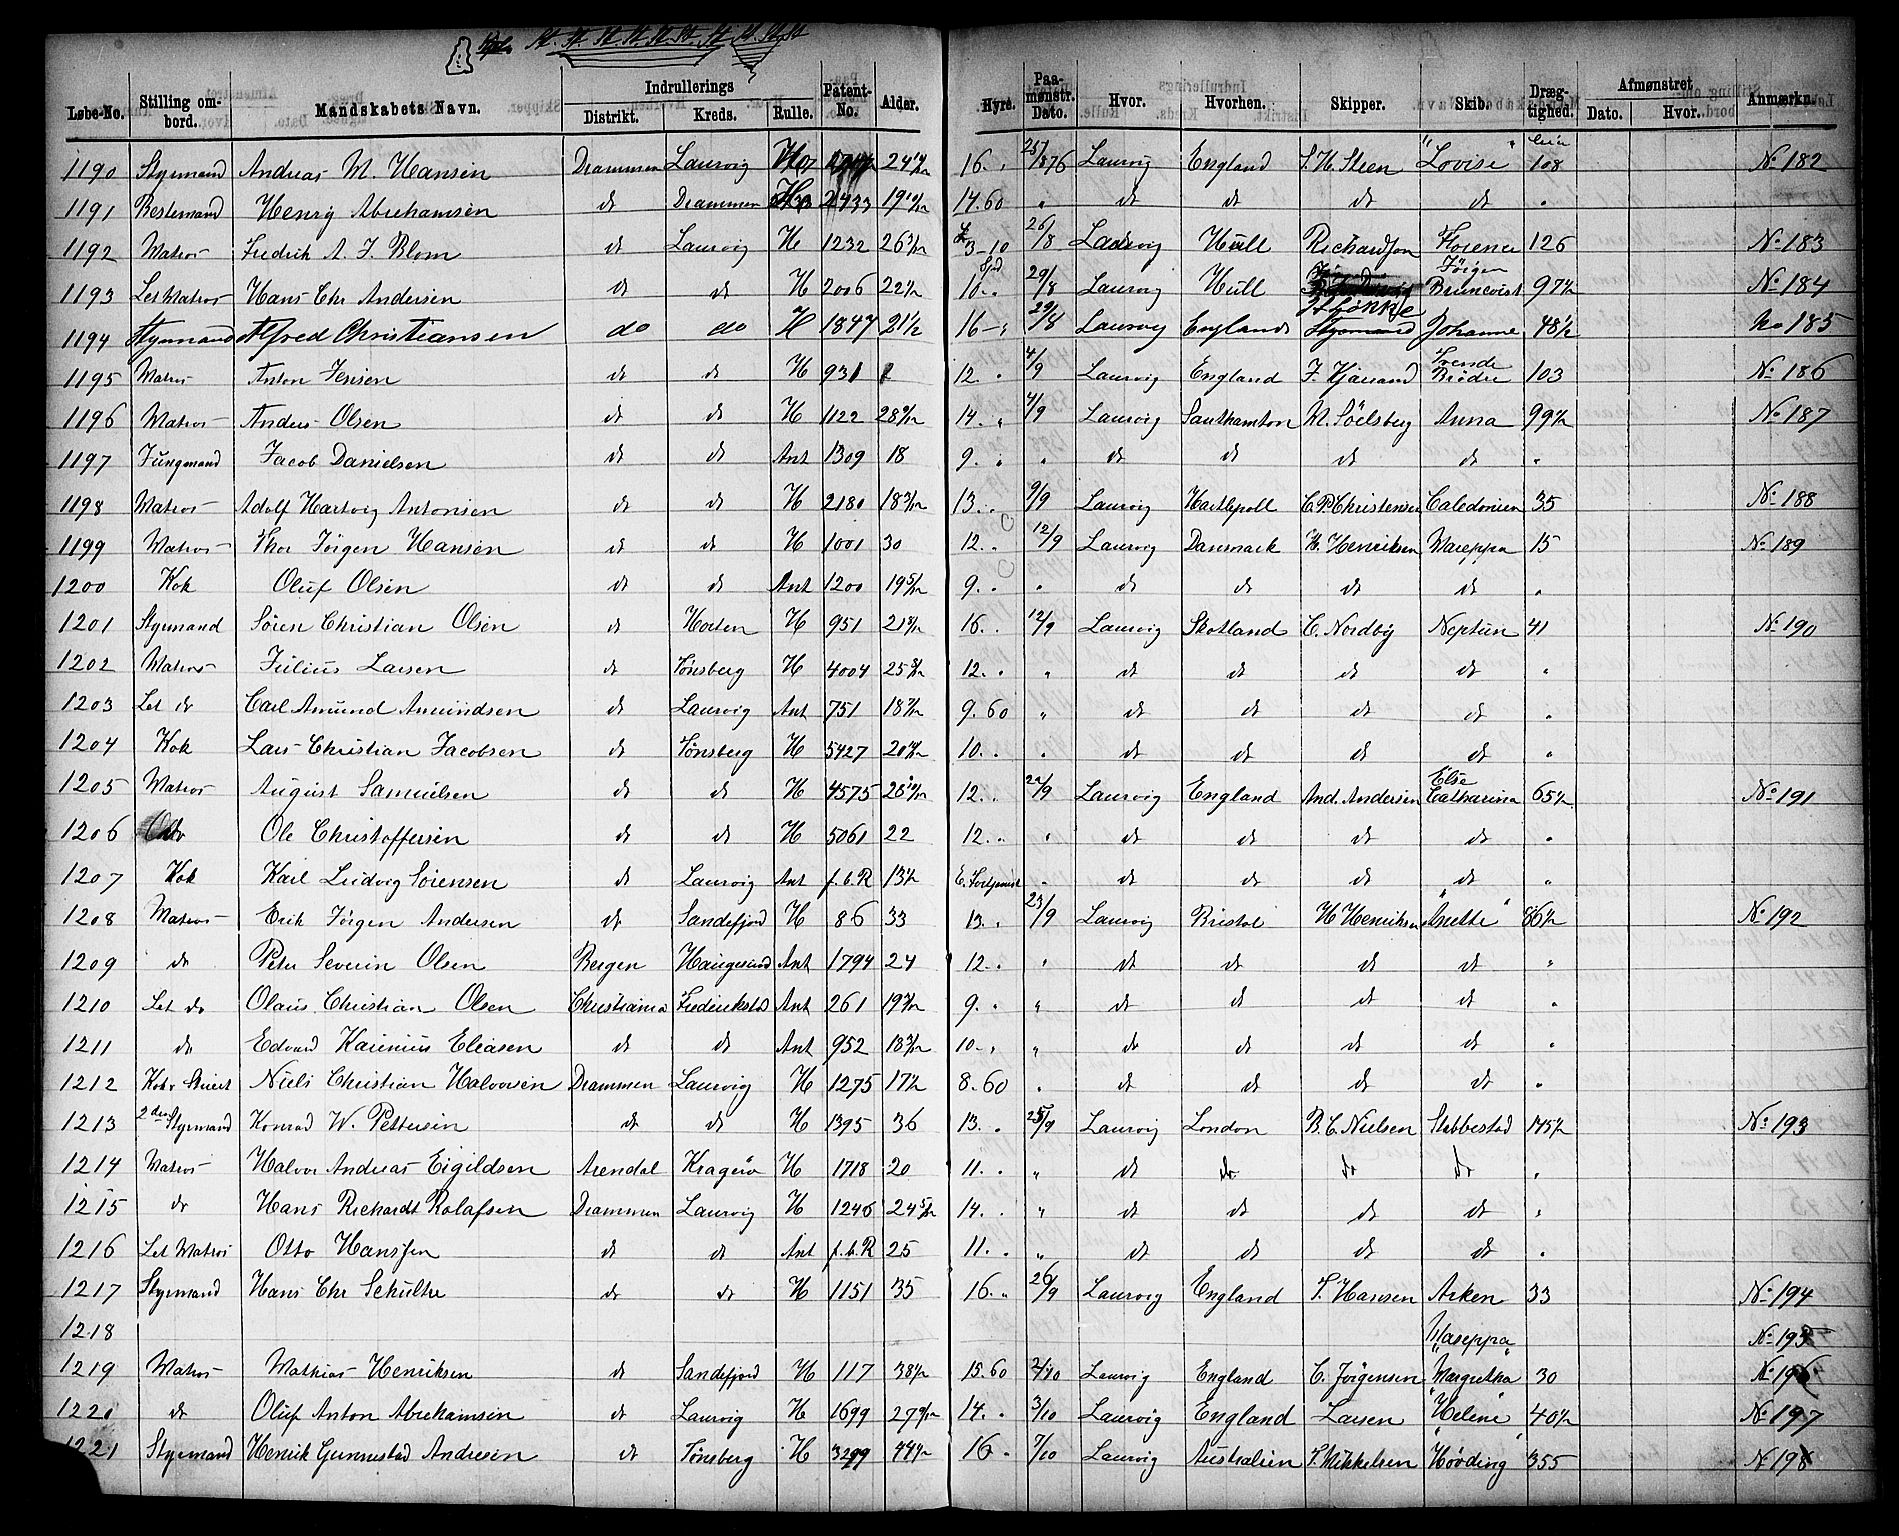 Løbe-No. | Stilling ombord. | Mandskabets Navn. | Indrullerings Distrikt. | Kreds. | Rulle. | Patent-No. | Alder. | Hyre. | Paamønstr. Dato. | Hvor. | Hvorhen. | Skipper. | Skib. | Drægtighed. | Afmønstret Dato. | Hvor. | Anmærkn.
1190 | Styrmand | Andreas M. Hansen | Drammen | Laurvig | 24 | 16. | 25/8 76 | Laurvig | England | S. H. Steen | "Lovise" | 108 | No 182
1191 | Bestemand | Henrig Abrahamsen | do | Drammen | 2433 | 19 10/12 | 14.60 | " | do | do | do | do | "
1192 | Matros | Fredrik A. J. Blom | do | Laurvig | H | 1232 | 26 3/12 | £ 3-10 | 26/8 | Laurvig | Hull | Richardson | Florence | 126 | No 183
1193 | Let Matros | Hans Chr Andersen | do | do | H | 2006 | 22 1/2 | Spd 10. | 29/8 | Laurvig | Hull | Jørgen Bruncvist | 97 1/2 | No 184
1194 | Styrmand | Alfred Christiansen | do | do | H | 1847 | 21 1/2 | 16 | 29/8 | Laurvig | England | Styrmand | Johanne | 48 1/2 | No 185
1195 | Matros | Anton Jensen | do | do | H | 931 | 12. | 4/9 | Laurvig | England | F. Kjærand | Svende Brødre | 103 | No 186
1196 | Matros | Anders Olsen | do | do | H | 1122 | 28 | 14. | 4/9 | Laurvig | Sauthamton | M. Söelsberg | Anna | 99 1/2 | No 187
1197 | Jungmand | Jacob Danielsen | do | do | Ant | 1309 | 18 | 9. | " | do | do | do | do | "
1198 | Matros | Adolf Hartvig Antonsen | do | do | H | 2180 | 18 3/12 | 13. | 9/9 | Laurvig | Hartlepoll | C. P. Christensen | Caledonien | 35 | No 188
1199 | Matros | Thor Jörgen Hansen | do | do | H | 1001 | 30 | 12. | 12/9 | Laurvig | Danmark | H. Henriksen | Mareppa | 15 | No 189
1200 | Kok | Oluf Olsen | do | do | Ant | 1200 | 19 5/12 | 9. | " | do | do | do | do | "
1201 | Styrmand | Sören Christian Olsen | do | Horten | H | 951 | 21 | 16. | 12/9 | Laurvig | Skotland | C. Nordby | Neptun | 41 | No 190
1202 | Matros | Julius Larsen | do | Tönsberg | H | 4004 | 25 | 12. | " | do | do | do | do | "
1203 | Let do | Carl Amund Amundsen | do | Laurvig | Ant | 751 | 18 | 9.60 | " | do | do | do | do | "
1204 | Kok | Lars Christian Jacobsen | do | Tönsberg | H | 5427 | 20 | 10. | " | do | do | do | do | "
1205 | Matros | August Samuelsen | do | do | H | 4575 | 26 | 12. | 22/9 | Laurvig | England | And. Andersen | Else Catharina | 65 1/2 | No 191
1206 | do | Ole Christoffersen | do | do | H | 5061 | 22 | 12. | " | do | do | do | do | "
1207 | Kok | Karl Ludvig Sörensen | do | Laurvig | Ant | f.b.R | 13 1/2 | E. Fortjenest | " | do | do | do | do | "
1208 | Matros | Erik Jörgen Andersen | do | Sandefjord | H | 86 | 33 | 13. | 23/9 | Laurvig | Bristol | H Henriksen | "Anette" | 86 1/2 | No 192
1209 | do | Peter Severin Olsen | Bergen | Haugesund | Ant | 1794 | 24 | 12. | " | do | do | do | do | "
1210 | Let do | Olaus Christian Olsen | Christiania | Frederikstad | Ant | 261 | 19 | 9. | " | do | do | do | do | "
1211 | do | Edvard Karinius Eliasen | do | do | Ant | 952 | 18 | 10. | " | do | do | do | do | "
1212 | Kok & Stuert | Niels Christian Halvorsen | Drammen | Laurvig | H | 1275 | 17 1/2 | 8.60 | " | do | do | do | do | "
1213 | 2den Styrmand | Konrad W. Pettersen | do | do | H | 1395 | 36 | 13. | 25/9 | Laurvig | London | B. C. Nielsen | Stubbestad | 145 1/2 | No 193
1214 | Matros | Halvor Andreas Eigildsen | Arendal | Kragerö | H | 1718 | 20 | 11. | " | do | do | do | do | "
1215 | do | Hans Richardt Rolafsen | Drammen | Laurvig | H | 1246 | 24 5/12 | 14. | " | do | do | do | do | "
1216 | Let Matros | Otto Hanssen | do | do | Ant | f.b.R | 25 | 11. | " | do | do | do | do | "
1217 | Styrmand | Hans Chr Schultze | do | do | H | 1151 | 35 | 16. | 26/9 | Laurvig | England | S. Hansen | Arken | 33 | No 194
1218 | "Maseppa" | No 195
1219 | Matros | Mathias Henriksen | do | Sandefjord | H | 117 | 38 1/2 | 15.60 | 2/10 | Laurvig | England | C. Jörgensen | Margretha | 30 | No 196
1220 | do | Oluf Anton Abrahamsen | do | Laurvig | H | 1699 | 27 9/12 | 14. | 3/10 | Laurvig | England | Larsen | "Helene" | 40 1/2 | No 197
1221 | Styrmand | Henrik Gunnestad Andresen | do | Tönsberg | H | 3299 | 44 1/2 | 16. | 7/10 | Laurvig | Australien | S. Mikkelsen | "Høvding" | 355 | No 198